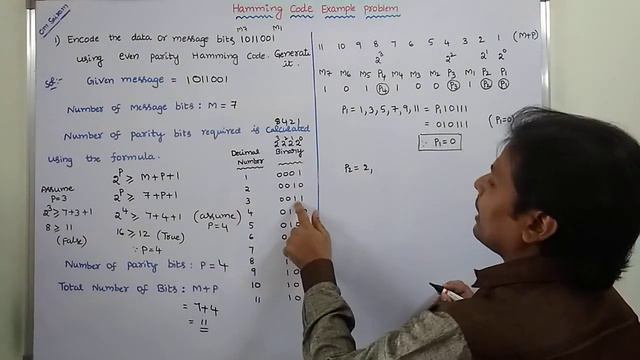 Hamming Code Example problem
OM SAIRAM
M7 M1
1) Encode the data or message bits 1011001
using even parity Hamming Code. Generate it.
Sol:- Given message = 1011001
Number of Message bits : M = 7
Number of parity bits required is Calculated
using the formula.
2^P ≥ M+P+1
Assume
P=3
2^P ≥ 7+P+1
2^3 ≥ 7+3+1
8 ≥ 11
(False)
2^4 ≥ 7+4+1 (assume) P=4
16 ≥ 12 (True)
∵ P=4
Number of parity bits : P = 4
Total Number of Bits : M+P
= 7+4
= 11
8421
2^3 2^2 2^1 2^0
Decimal Number Binary
1 0001
2 0010
3 0011
4
5
6
7
8
9 10
10 10
11 10
11 10 9 8 7 6 5 4 3 2 1 (M+P)
2^3 2^2 2^1 2^0
M7 M6 M5 P4 M4 M3 M2 P3 M1 P2 P1
1 0 1 P4 1 0 0 P3 1 P2 P1
P1 = 1, 3, 5, 7, 9, 11 = P1 10111
= 010111 (P1=0)
∴ P1=0
P2 = 2,